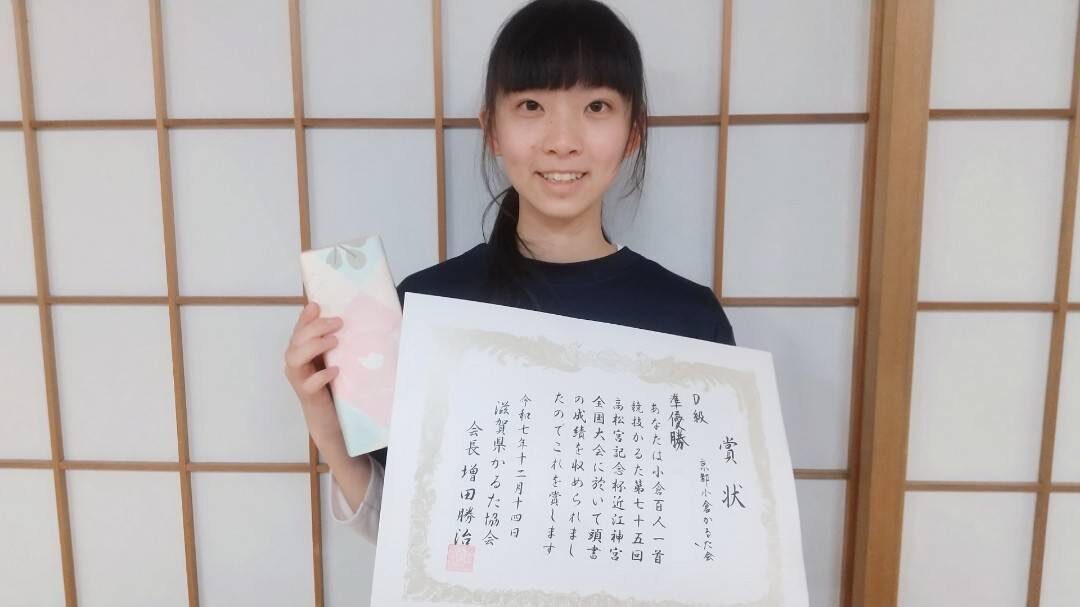 賞状
京都小倉かるた会
D級
準優勝
あなたは小倉百人一首
競技かるた第七十五回
高松宮記念杯近江神宮
全国大会に於いて頭書
の成績を収められまし
たのでこれを賞します
令和七年十二月十四日
滋賀県かるた協会
会長 増田勝治